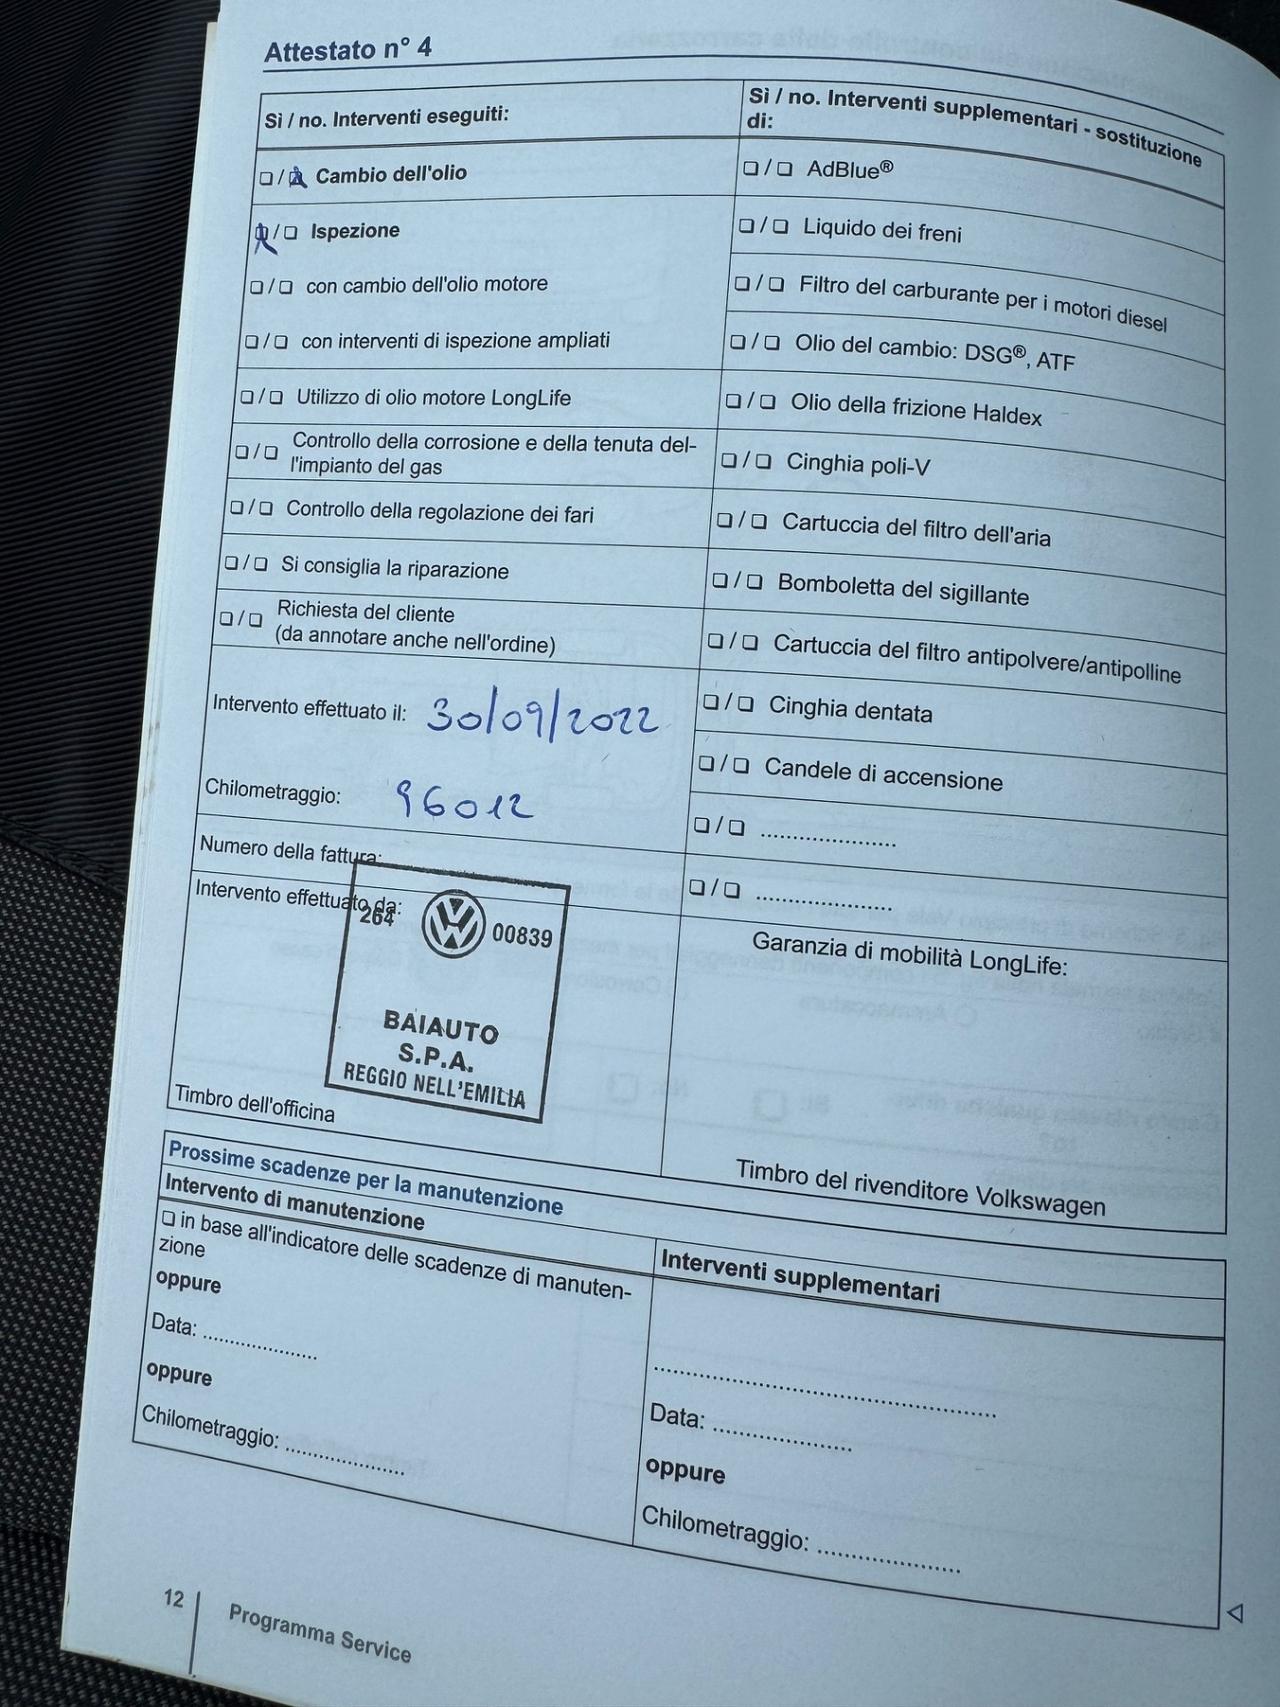 Attestato n° 4
Sì / no. Interventi eseguiti:
❏ / ❏ Cambio dell'olio
❏ / ❏ Ispezione
❏ / ❏ con cambio dell'olio motore
❏ / ❏ con interventi di ispezione ampliati
❏ / ❏ Utilizzo di olio motore LongLife
❏ / ❏ Controllo della corrosione e della tenuta del-
l'impianto del gas
❏ / ❏ Controllo della regolazione dei fari
❏ / ❏ Si consiglia la riparazione
❏ / ❏ Richiesta del cliente
(da annotare anche nell'ordine)
Intervento effettuato il: 30/09/2022
Chilometraggio: 96012
Numero della fattura:
Intervento effettuato da:
264 00839
BAIAUTO
S.P.A.
REGGIO NELL'EMILIA
Timbro dell'officina
Sì / no. Interventi supplementari - sostituzione
di:
❏ / ❏ AdBlue®
❏ / ❏ Liquido dei freni
❏ / ❏ Filtro del carburante per i motori diesel
❏ / ❏ Olio del cambio: DSG®, ATF
❏ / ❏ Olio della frizione Haldex
❏ / ❏ Cinghia poli-V
❏ / ❏ Cartuccia del filtro dell'aria
❏ / ❏ Bomboletta del sigillante
❏ / ❏ Cartuccia del filtro antipolvere/antipolline
❏ / ❏ Cinghia dentata
❏ / ❏ Candele di accensione
❏ / ❏ ......................
❏ / ❏ ......................
Garanzia di mobilità LongLife:
Timbro del rivenditore Volkswagen
Prossime scadenze per la manutenzione
Intervento di manutenzione
❏ in base all'indicatore delle scadenze di manuten-
zione
oppure
Data: ....................
oppure
Chilometraggio: ....................
Interventi supplementari
......................................................
Data: ......................
oppure
Chilometraggio: ......................
12 Programma Service